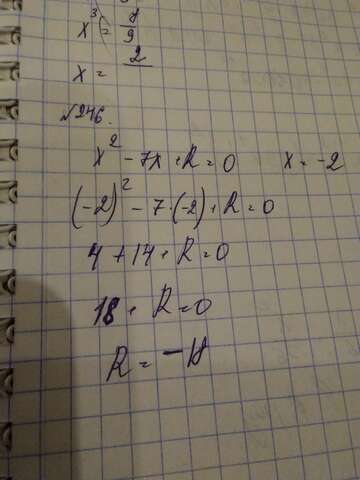 x³ = 8/9
x = 2
№246.
x² - 7x + R = 0 x = -2
(-2)² - 7·(-2) + R = 0
4 + 14 + R = 0
18 + R = 0
R = -18